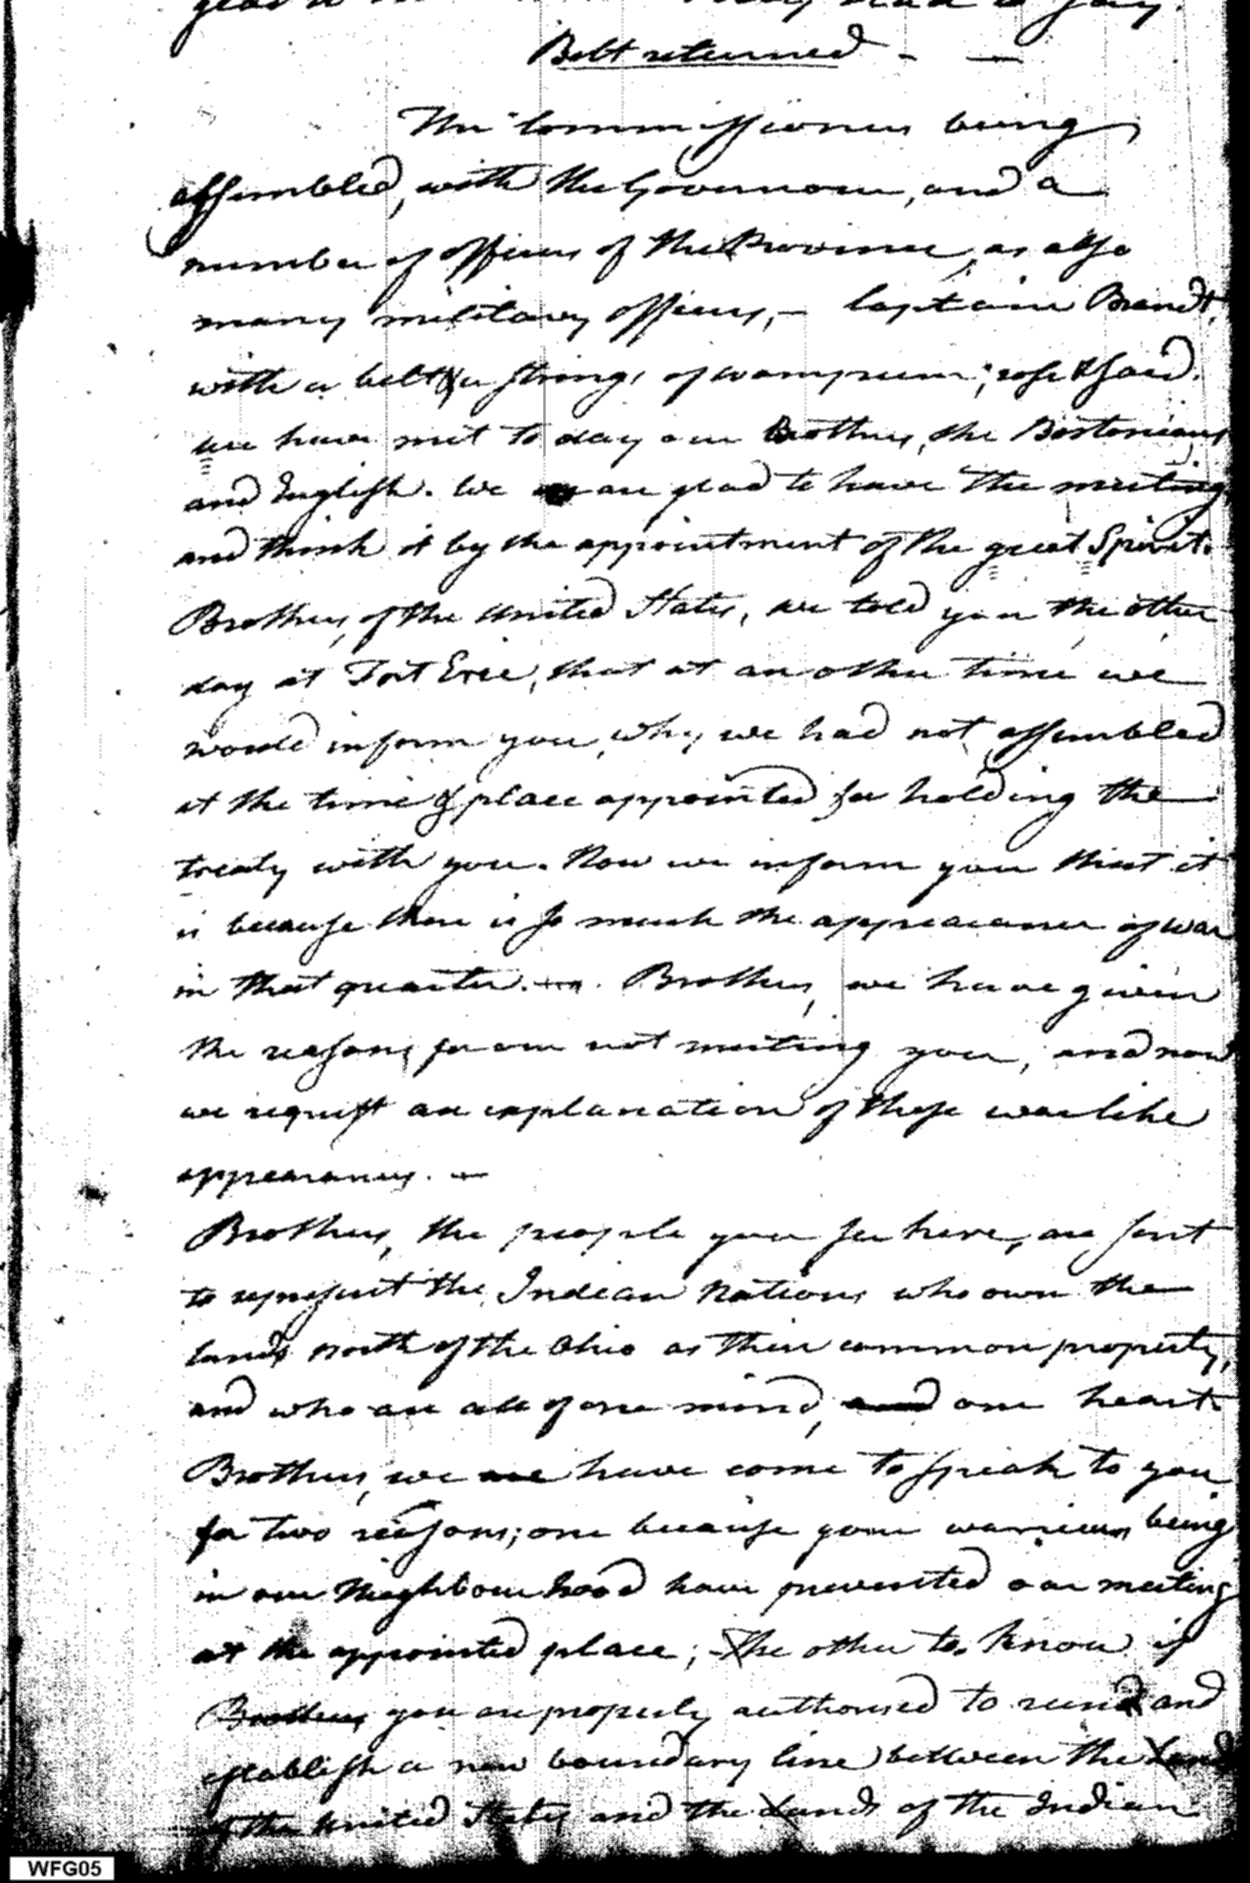 Belt returned - —
The Commissioners being
assembled, with the Governour, and a
number of officers of the Province, as also
many military officers, - Captain Brandt,
with a belt & strings of wampum, rose & said.
we have met to day our Brothers, the Bostonians
and English. We are glad to have the meeting,
and think it by the appointment of the great Spirit.
Brothers, of the United States, we told you the other
day at Fort Erie, that at another time we
would inform you, why we had not assembled
at the time & place appointed for holding the
treaty with you. Now we inform you that it
is because there is so much the appearance of war
in that quarter. — Brothers, we have given
the reasons for our not meeting you, and now
we request an explanation of those warlike
appearances. —
Brothers, the people you see here, are sent
to represent the Indian Nations who own the
lands north of the Ohio as their common property,
and who are all of one mind, and one heart.
Brothers, we are have come to speak to you
for two reasons; one because your warriours being
in our neighbourhood have prevented our meeting
at the appointed place; The other to know if
Brothers you are properly authorised to run and
establish a new boundary line between the Lands
of the United States and the Lands of the Indian
WFG05